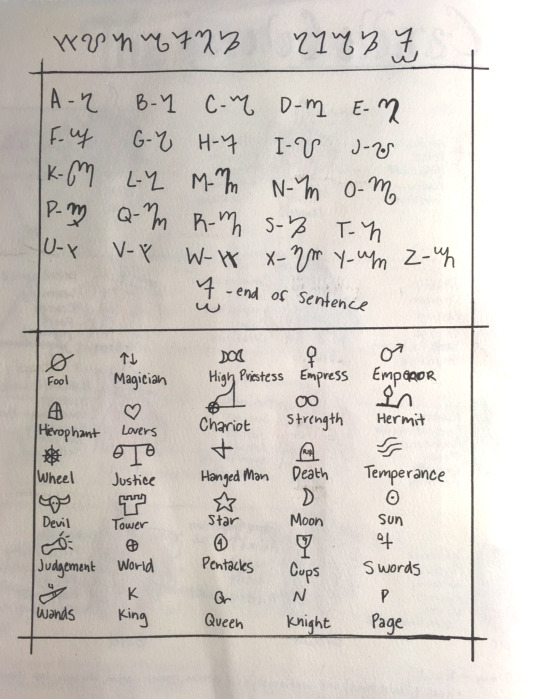 A - B - C - D - E -
F - G - H - I - J -
K - L - M - N - O -
P - Q - R - S - T -
U - V - W - X - Y - Z -
- end of sentence
Fool Magician High Priestess Empress Emperor
Hierophant Lovers Chariot Strength Hermit
Wheel Justice Hanged Man Death Temperance
Devil Tower Star Moon Sun
Judgement World Pentacles Cups Swords
K Q N P
Wands King Queen Knight Page